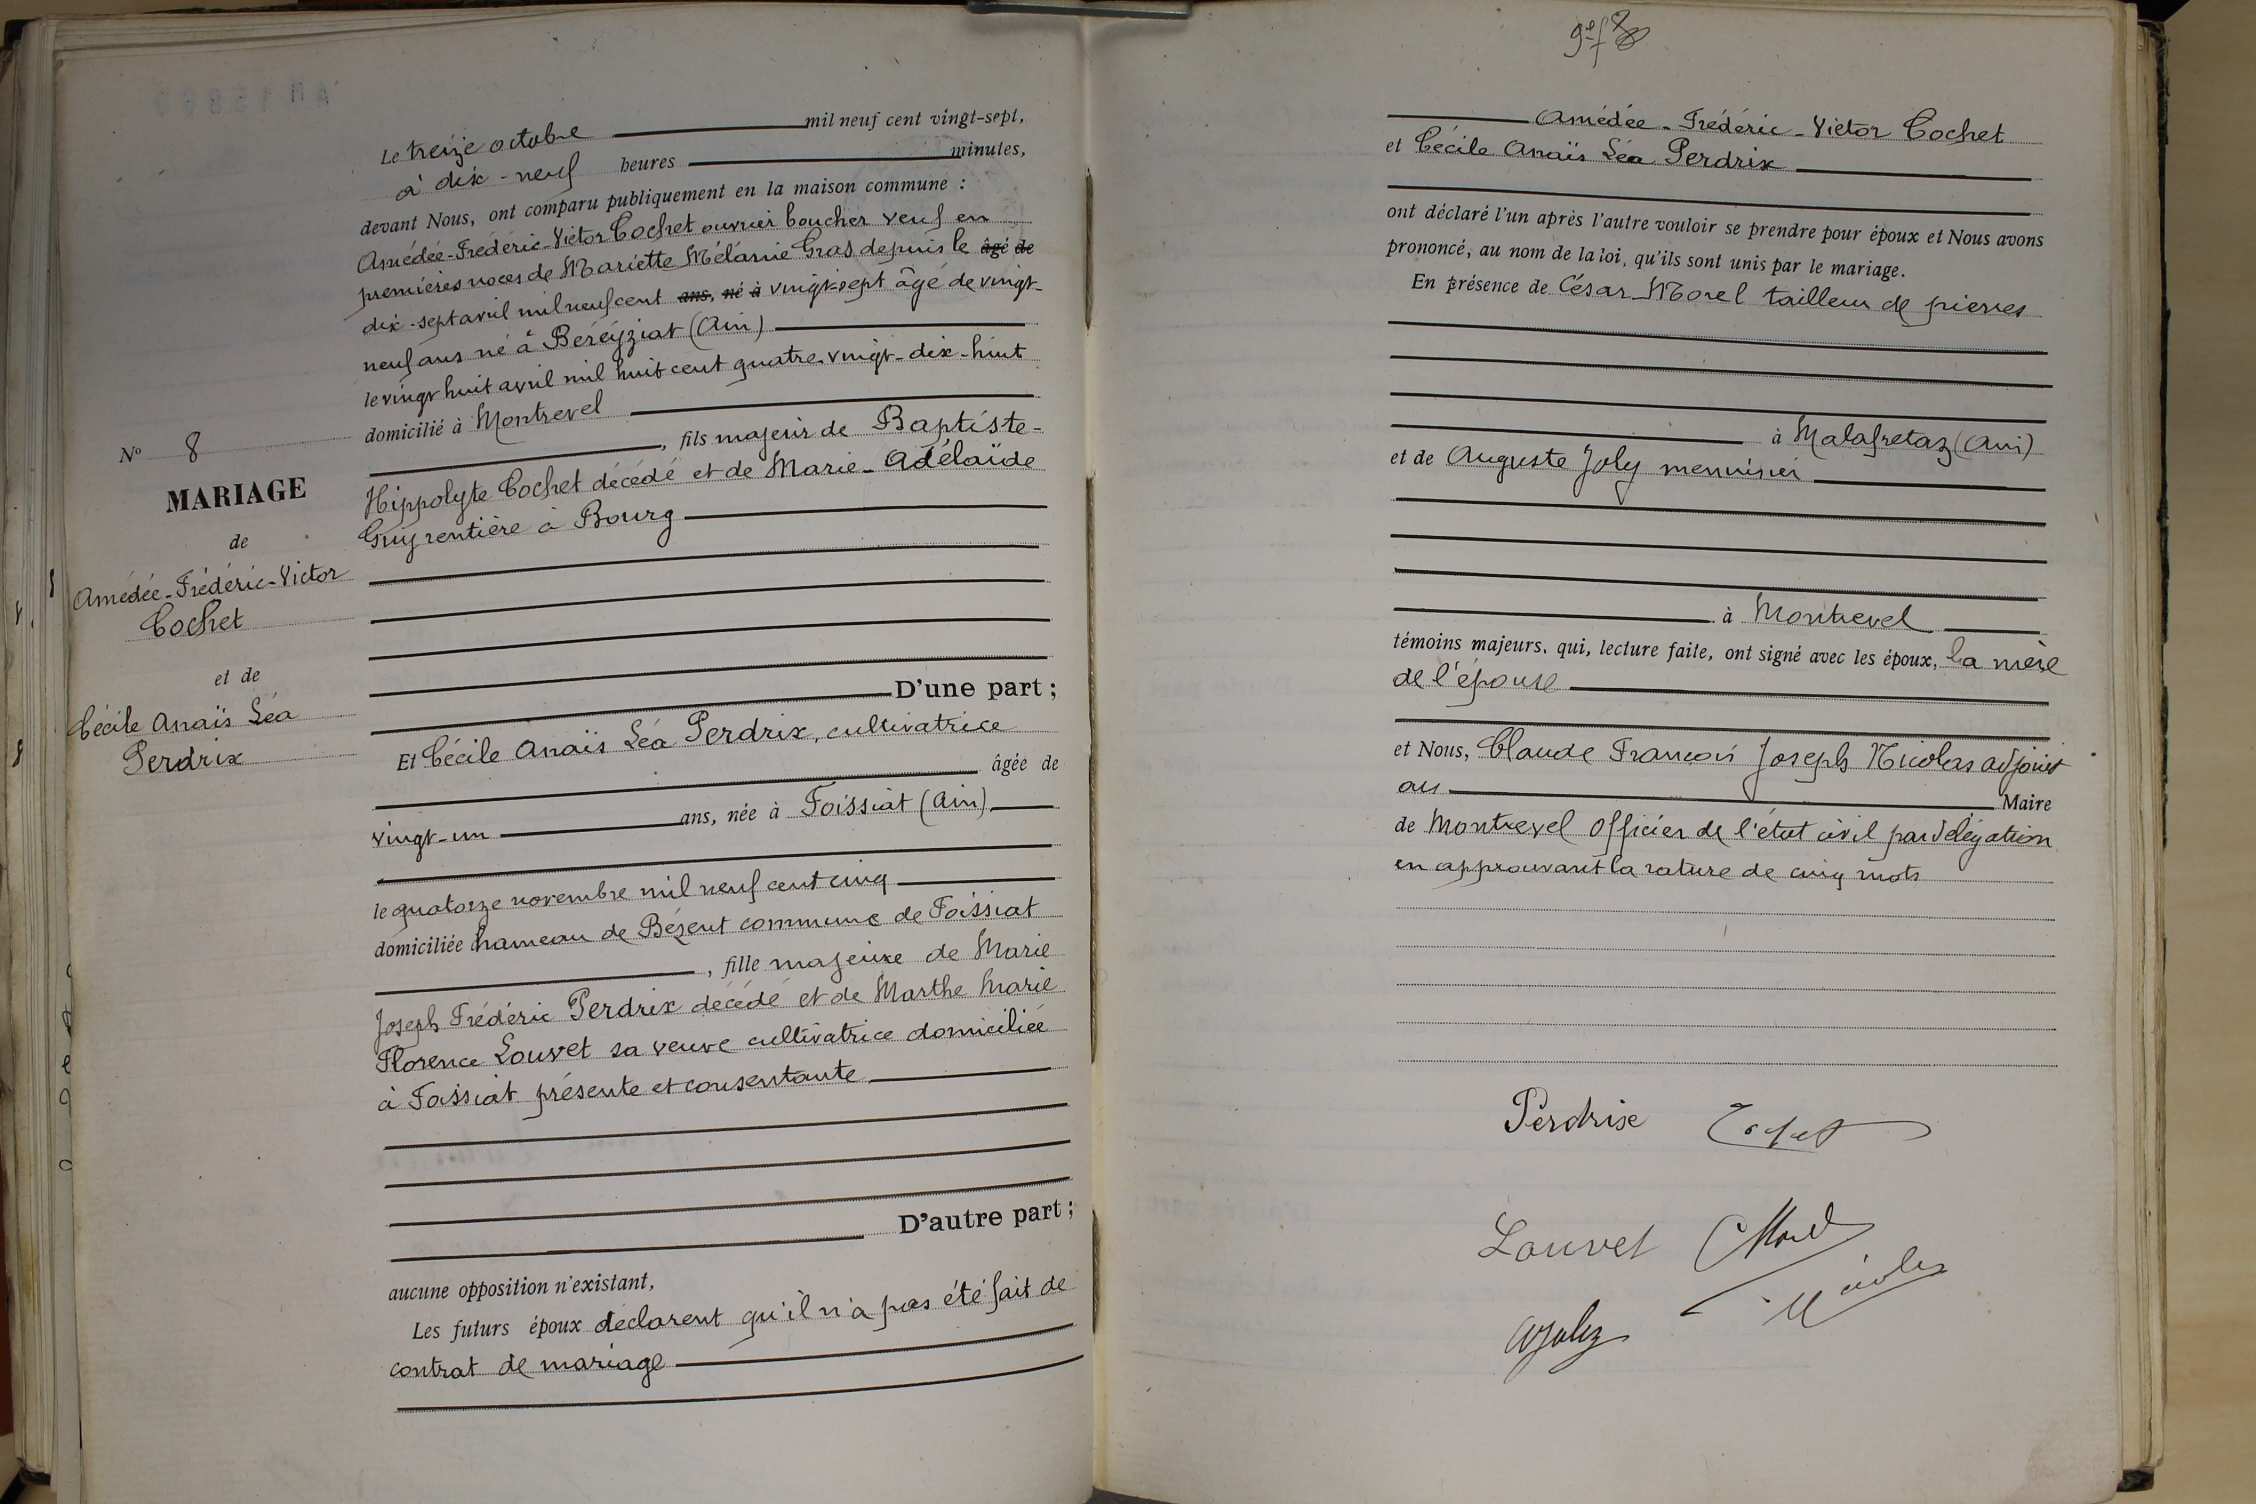 Le treize octobre mil neuf cent vingt-sept,
à dix-neuf heures minutes,
devant Nous, ont comparu publiquement en la maison commune :
Amédée-Frédéric-Victor Cochet ouvrier boucher veuf en
premières noces de Mariette Mélanie Gras depuis le âgé de
dix-sept avril mil neuf cent ans, né à vingt-sept âgé de vingt-
neuf ans né à Béréyziat (Ain)
le vingt huit avril mil huit cent quatre-vingt-dix-huit
domicilié à Montrevel
, fils majeur de Baptiste-
Hippolyte Cochet décédé et de Marie-Adélaïde
Guy rentière à Bourg
D'une part ;
Nº 8
MARIAGE
de
Amédée-Frédéric-Victor
Cochet
et de
Cécile Anaïs Léa
Perdrix
Et Cécile Anaïs Léa Perdrix, cultivatrice
âgée de
vingt-un ans, née à Foissiat (Ain)
le quatorze novembre mil neuf cent cinq
domiciliée hameau de Bézent commune de Foissiat
, fille majeure de Marie
Joseph Frédéric Perdrix décédé et de Marthe Marie
Florence Louvet sa veuve cultivatrice domiciliée
à Foissiat présente et consentante
D'autre part ;
aucune opposition n'existant,
Les futurs époux déclarent qu'il n'a pas été fait de
contrat de mariage
Amédée-Frédéric-Victor Cochet
et Cécile Anaïs Léa Perdrix
ont déclaré l'un après l'autre vouloir se prendre pour époux et Nous avons
prononcé, au nom de la loi, qu'ils sont unis par le mariage.
En présence de César Morel tailleur de pierres
à Malafretaz (Ain)
et de Auguste Joly menuisier
à Montrevel
témoins majeurs, qui, lecture faite, ont signé avec les époux, la mère
de l'épouse
et Nous, Claude François Joseph Nicolas adjoint
au Maire
de Montrevel officier de l'état civil par délégation
en approuvant la rature de cinq mots
Perdrix Cochet
Louvet CMorel
Nicolas
AJoly